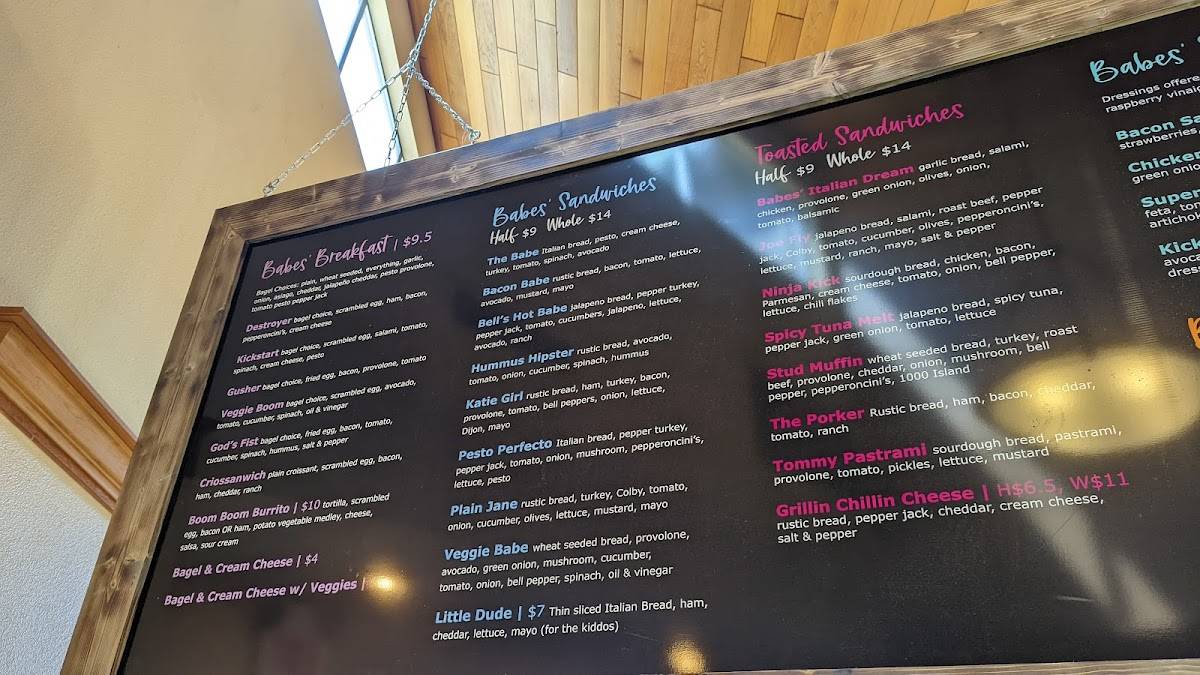 Babes' Breakfast | $9.5
Bagel Choices: plain, wheat seeded, everything, garlic,
onion, asiago, cheddar, jalapeño cheddar, pesto provolone,
tomato pesto pepper jack
Destroyer bagel choice, scrambled egg, ham, bacon,
pepperoncini's, cream cheese
Kickstart bagel choice, scrambled egg, salami, tomato,
spinach, cream cheese, pesto
Gusher bagel choice, fried egg, bacon, provolone, tomato
Veggie Boom bagel choice, scrambled egg, avocado,
tomato, cucumber, spinach, oil & vinegar
God's Fist bagel choice, fried egg, bacon, tomato,
cucumber, spinach, hummus, salt & pepper
Criossanwich plain croissant, scrambled egg, bacon,
ham, cheddar, ranch
Boom Boom Burrito | $10 tortilla, scrambled
egg, bacon OR ham, potato vegetable medley, cheese,
salsa, sour cream
Bagel & Cream Cheese | $4
Bagel & Cream Cheese w/ Veggies |
Babes' Sandwiches
Half $9 Whole $14
The Babe Italian bread, pesto, cream cheese,
turkey, tomato, spinach, avocado
Bacon Babe rustic bread, bacon, tomato, lettuce,
avocado, mustard, mayo
Bell's Hot Babe jalapeno bread, pepper turkey,
pepper jack, tomato, cucumbers, jalapeno, lettuce,
avocado, ranch
Hummus Hipster rustic bread, avocado,
tomato, onion, cucumber, spinach, hummus
Katie Girl rustic bread, ham, turkey, bacon,
provolone, tomato, bell peppers, onion, lettuce,
Dijon, mayo
Pesto Perfecto Italian bread, pepper turkey,
pepper jack, tomato, onion, mushroom, pepperoncini's,
lettuce, pesto
Plain Jane rustic bread, turkey, Colby, tomato,
onion, cucumber, olives, lettuce, mustard, mayo
Veggie Babe wheat seeded bread, provolone,
avocado, green onion, mushroom, cucumber,
tomato, onion, bell pepper, spinach, oil & vinegar
Little Dude | $7 Thin sliced Italian Bread, ham,
cheddar, lettuce, mayo (for the kiddos)
Toasted Sandwiches
Half $9 Whole $14
Babes' Italian Dream garlic bread, salami,
chicken, provolone, green onion, olives, onion,
tomato, balsamic
Joe Fly jalapeno bread, salami, roast beef, pepper
jack, Colby, tomato, cucumber, olives, pepperoncini's,
lettuce, mustard, ranch, mayo, salt & pepper
Ninja Kick sourdough bread, chicken, bacon,
Parmesan, cream cheese, tomato, onion, bell pepper,
lettuce, chili flakes
Spicy Tuna Melt jalapeno bread, spicy tuna,
pepper jack, green onion, tomato, lettuce
Stud Muffin wheat seeded bread, turkey, roast
beef, provolone, cheddar, onion, mushroom, bell
pepper, pepperoncini's, 1000 Island
The Porker Rustic bread, ham, bacon, cheddar,
tomato, ranch
Tommy Pastrami sourdough bread, pastrami,
provolone, tomato, pickles, lettuce, mustard
Grillin Chillin Cheese | H$6.5, W$11
rustic bread, pepper jack, cheddar, cream cheese,
salt & pepper
Babes'
Dressings offere
raspberry vinaig
Bacon Sa
strawberries
Chicken
green onio
Super
feta, to
artichok
Kick
avoca
dres